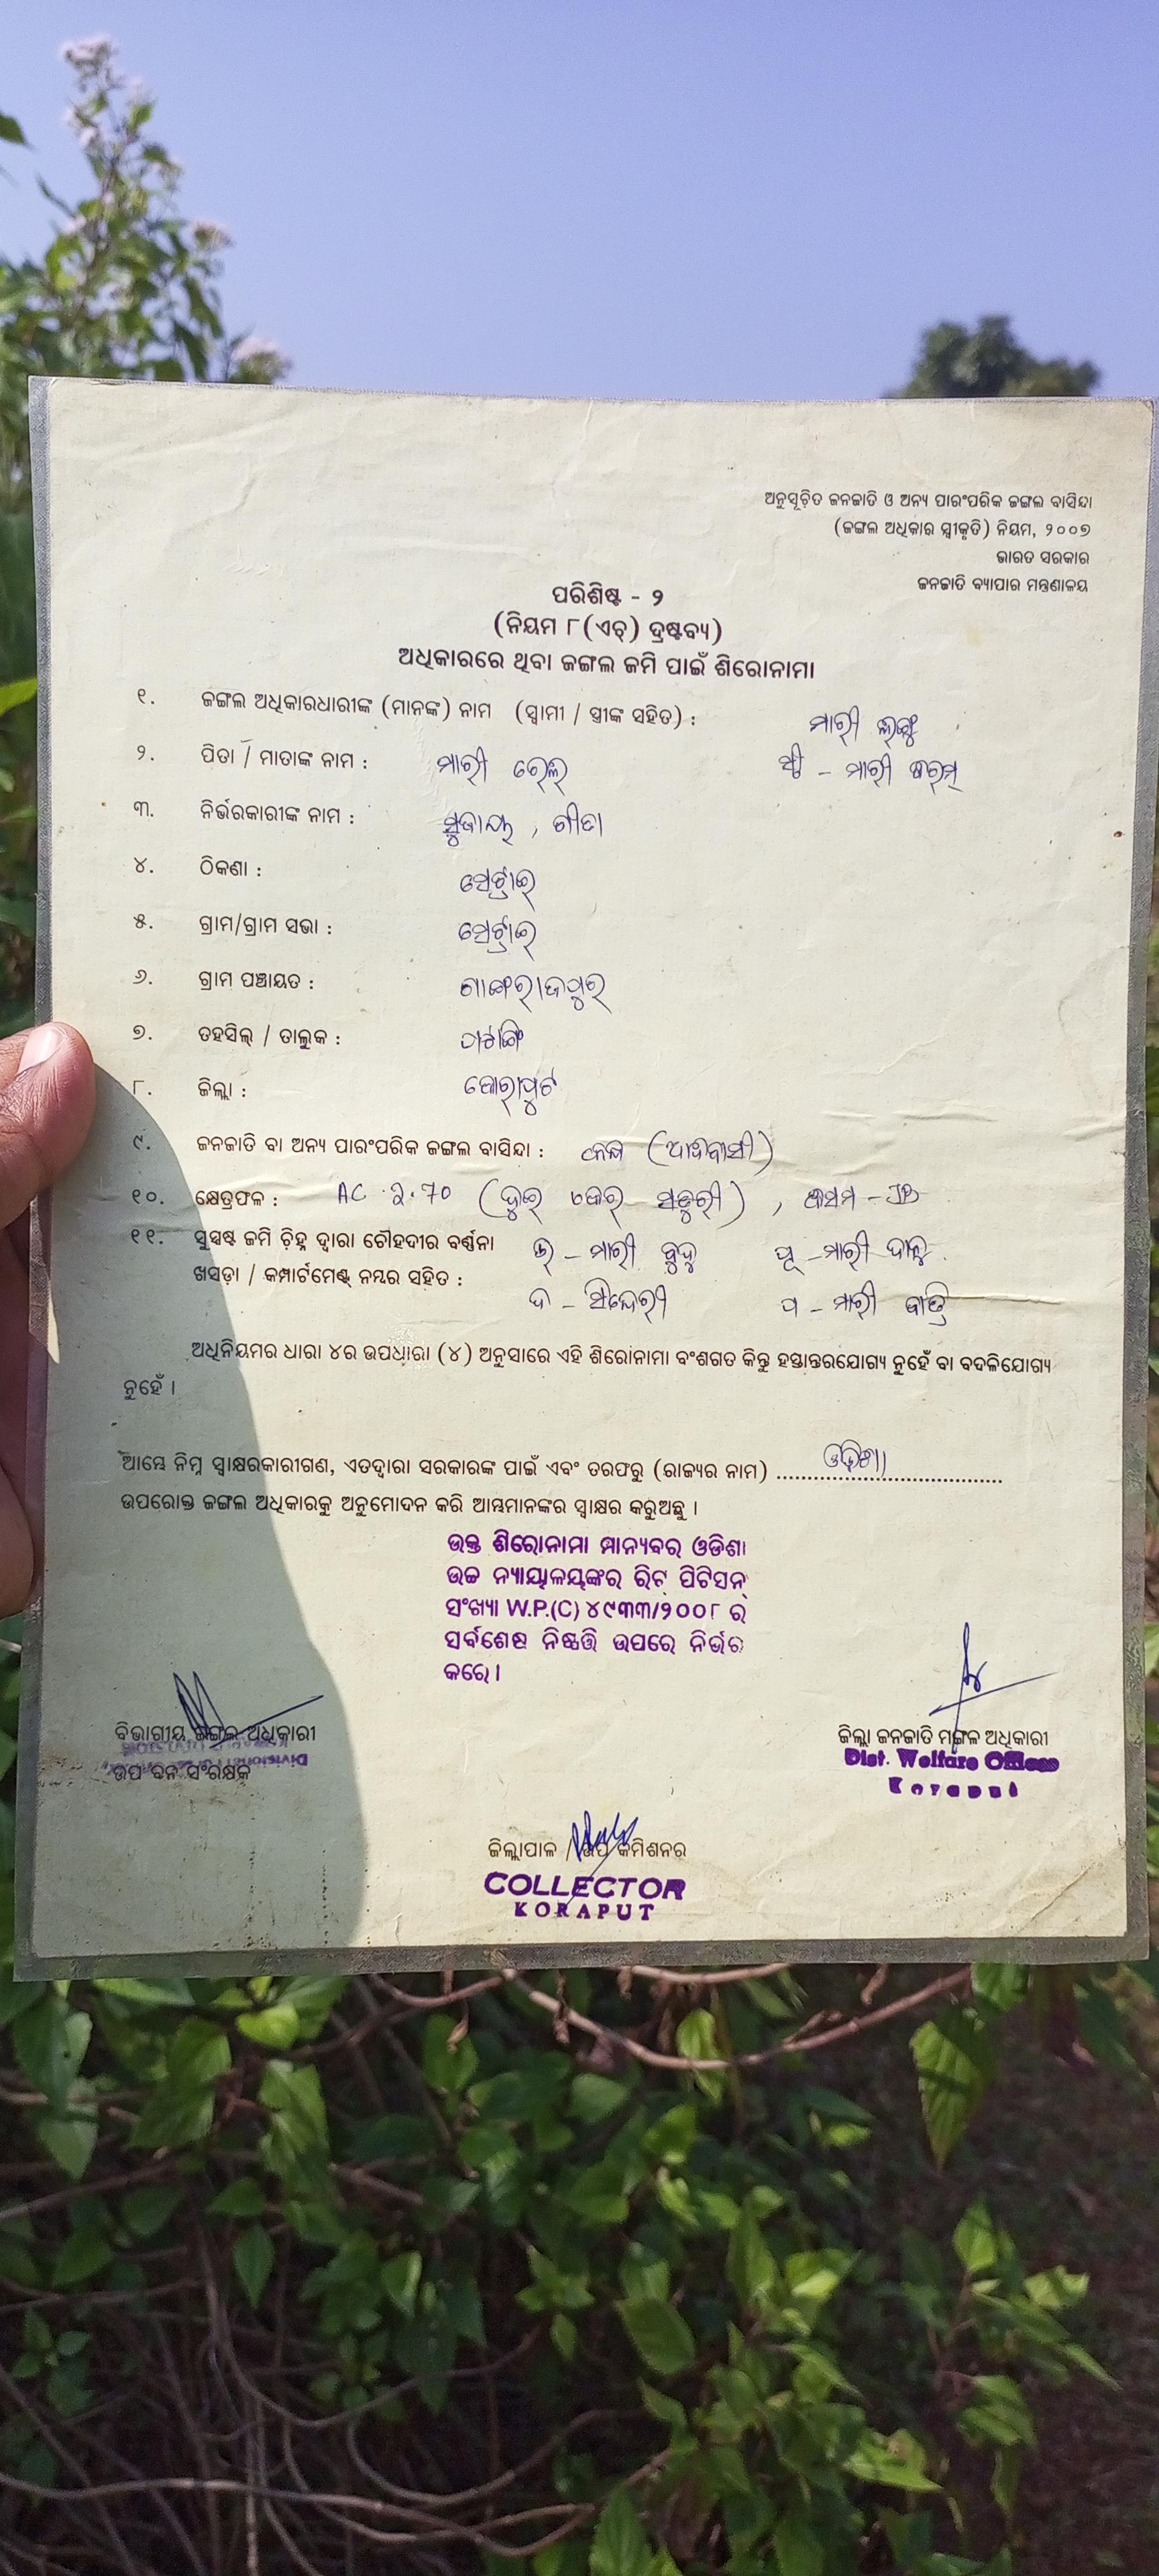 ଅନୁସୂଚିତ ଜନଜାତି ଓ ଅନ୍ୟ ପାରଂପରିକ ଜଙ୍ଗଲ ବାସିନ୍ଦା
(ଜଙ୍ଗଲ ଅଧିକାର ସ୍ୱୀକୃତି) ନିୟମ, ୨୦୦୭
ଭାରତ ସରକାର
ଜନଜାତି ବ୍ୟାପାର ମନ୍ତ୍ରଣାଳୟ
ପରିଶିଷ୍ଟ - ୨
(ନିୟମ ୮(ଏଚ୍) ଦ୍ରଷ୍ଟବ୍ୟ)
ଅଧିକାରରେ ଥିବା ଜଙ୍ଗଲ ଜମି ପାଇଁ ଶିରୋନାମା
୧. ଜଙ୍ଗଲ ଅଧିକାରଧାରୀଙ୍କ (ମାନଙ୍କ) ନାମ (ସ୍ୱାମୀ / ସ୍ତ୍ରୀଙ୍କ ସହିତ) : ମାରୀ
୨. ପିତା / ମାତାଙ୍କ ନାମ : ମାରୀ ସ୍ତ୍ରୀ - ମାରୀ
୩. ନିର୍ଭରକାରୀଙ୍କ ନାମ : ଗୀତା
୪. ଠିକଣା :
୫. ଗ୍ରାମ/ଗ୍ରାମ ସଭା :
୬. ଗ୍ରାମ ପଞ୍ଚାୟତ : ଗାଙ୍ଗରାଜପୁର
୭. ତହସିଲ୍ / ତାଲୁକ : ପଟାଙ୍ଗି
୮. ଜିଲ୍ଲା : କୋରାପୁଟ
୯. ଜନଜାତି ବା ଅନ୍ୟ ପାରଂପରିକ ଜଙ୍ଗଲ ବାସିନ୍ଦା : (ଆଦିବାସୀ)
୧୦. କ୍ଷେତ୍ରଫଳ : AC 2.70 (ଦୁଇ ଏକର ସତୁରୀ) , କିସମ -
୧୧. ସୁସ୍ପଷ୍ଟ ଜମି ଚିହ୍ନ ଦ୍ୱାରା ଚୌହଦୀର ବର୍ଣ୍ଣନା ଉ - ମାରୀ ବୁଦୁ ପୂ - ମାରୀ
ଖସଡ଼ା / କମ୍ପାର୍ଟମେଣ୍ଟ ନମ୍ବର ସହିତ : ଦ - ପ - ମାରୀ
ଅଧିନିୟମର ଧାରା ୪ର ଉପଧାରା (୪) ଅନୁସାରେ ଏହି ଶିରୋନାମା ବଂଶଗତ କିନ୍ତୁ ହସ୍ତାନ୍ତରଯୋଗ୍ୟ ନୁହେଁ ବା ବଦଳିଯୋଗ୍ୟ
ନୁହେଁ ।
ଆମ୍ଭେ ନିମ୍ନ ସ୍ୱାକ୍ଷରକାରୀଗଣ, ଏତଦ୍ୱାରା ସରକାରଙ୍କ ପାଇଁ ଏବଂ ତରଫରୁ (ରାଜ୍ୟର ନାମ) ଓଡ଼ିଶା
ଉପରୋକ୍ତ ଜଙ୍ଗଲ ଅଧିକାରକୁ ଅନୁମୋଦନ କରି ଆମ୍ଭମାନଙ୍କର ସ୍ୱାକ୍ଷର କରୁଅଛୁ ।
ଉକ୍ତ ଶିରୋନାମା ମାନ୍ୟବର ଓଡିଶା
ଉଚ୍ଚ ନ୍ୟାୟାଳୟଙ୍କର ରିଟ୍ ପିଟିସନ୍
ସଂଖ୍ୟା W.P.(C) ୪୯୩୩/୨୦୦୮ ର
ସର୍ବଶେଷ ନିଷ୍ପତ୍ତି ଉପରେ ନିର୍ଭର
କରେ ।
ବିଭାଗୀୟ ଜଙ୍ଗଲ ଅଧିକାରୀ
ଉପ ବନ ସଂରକ୍ଷକ
ଜିଲ୍ଲା ଜନଜାତି ମଙ୍ଗଳ ଅଧିକାରୀ
Dist. Welfare Officer
Koraput
ଜିଲ୍ଲାପାଳ / ଉପ କମିଶନର
COLLECTOR
KORAPUT